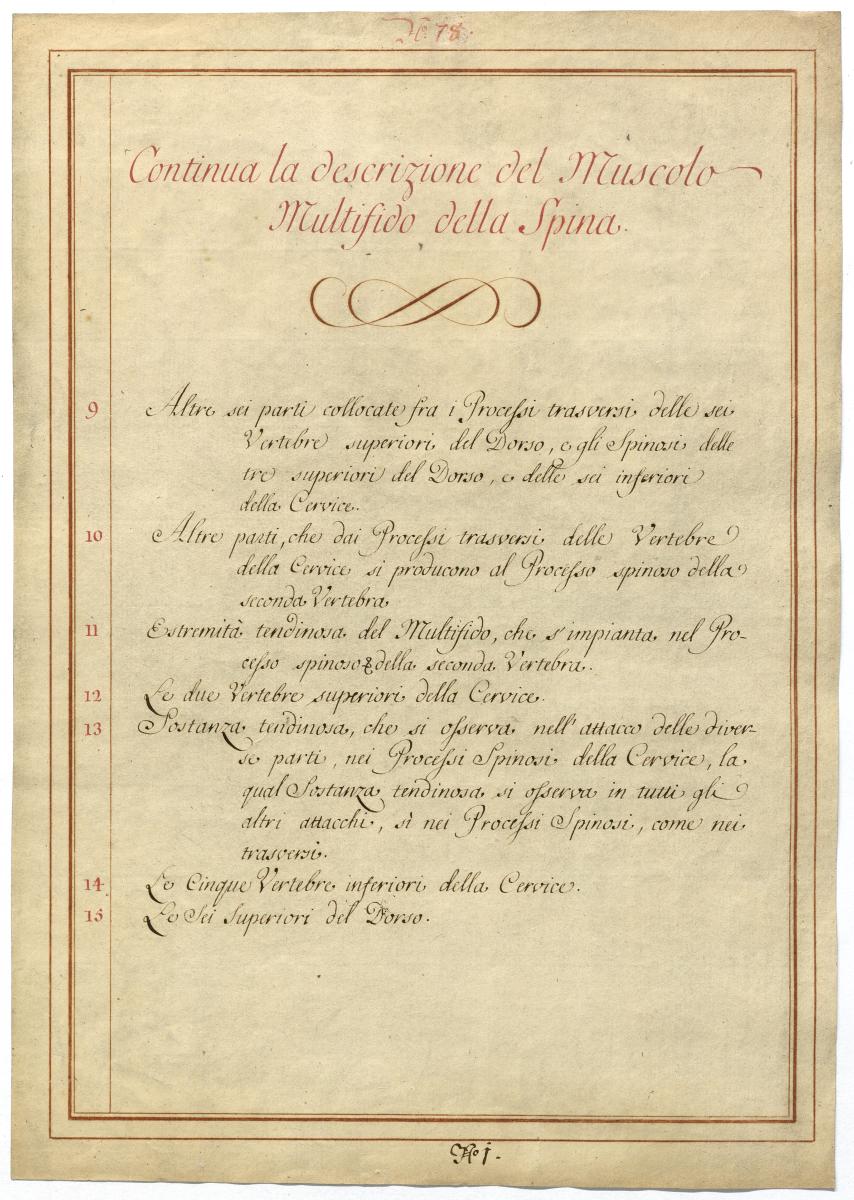 N.° 78.
Continua la descrizione del Muscolo
Multifido della Spina.
9 Altre sei parti collocate fra i Processi trasversi delle sei
Vertebre superiori del Dorso, e gli Spinosi delle
tre superiori del Dorso, e delle sei inferiori
della Cervice.
10 Altre parti, che dai Processi trasversi delle Vertebre
della Cervice si producono al Processo spinoso della
seconda Vertebra
11 Estremità tendinosa del Multifido, che s'impianta nel Pro-
cesso spinoso della seconda Vertebra.
12 Le due Vertebre superiori della Cervice.
13 Sostanza tendinosa, che si osserva nell'attacco delle diver-
se parti, nei Processi Spinosi della Cervice, la
qual Sostanza tendinosa si osserva in tutti gli
altri attacchi, sì nei Processi Spinosi, come nei
trasversi.
14 Le Cinque Vertebre inferiori della Cervice.
15 Le Sei Superiori del Dorso.